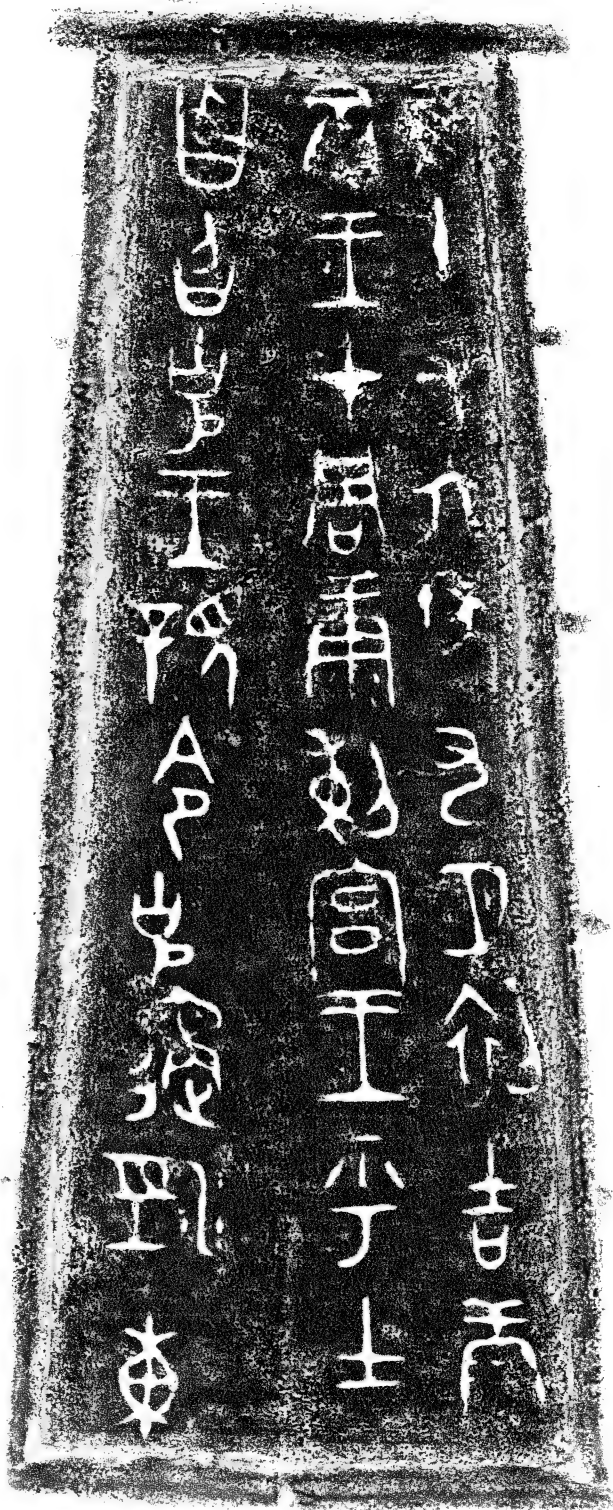 隹十又六年九月初吉庚
寅王才周康剌宮王乎士
曶召克王親令克遹涇東